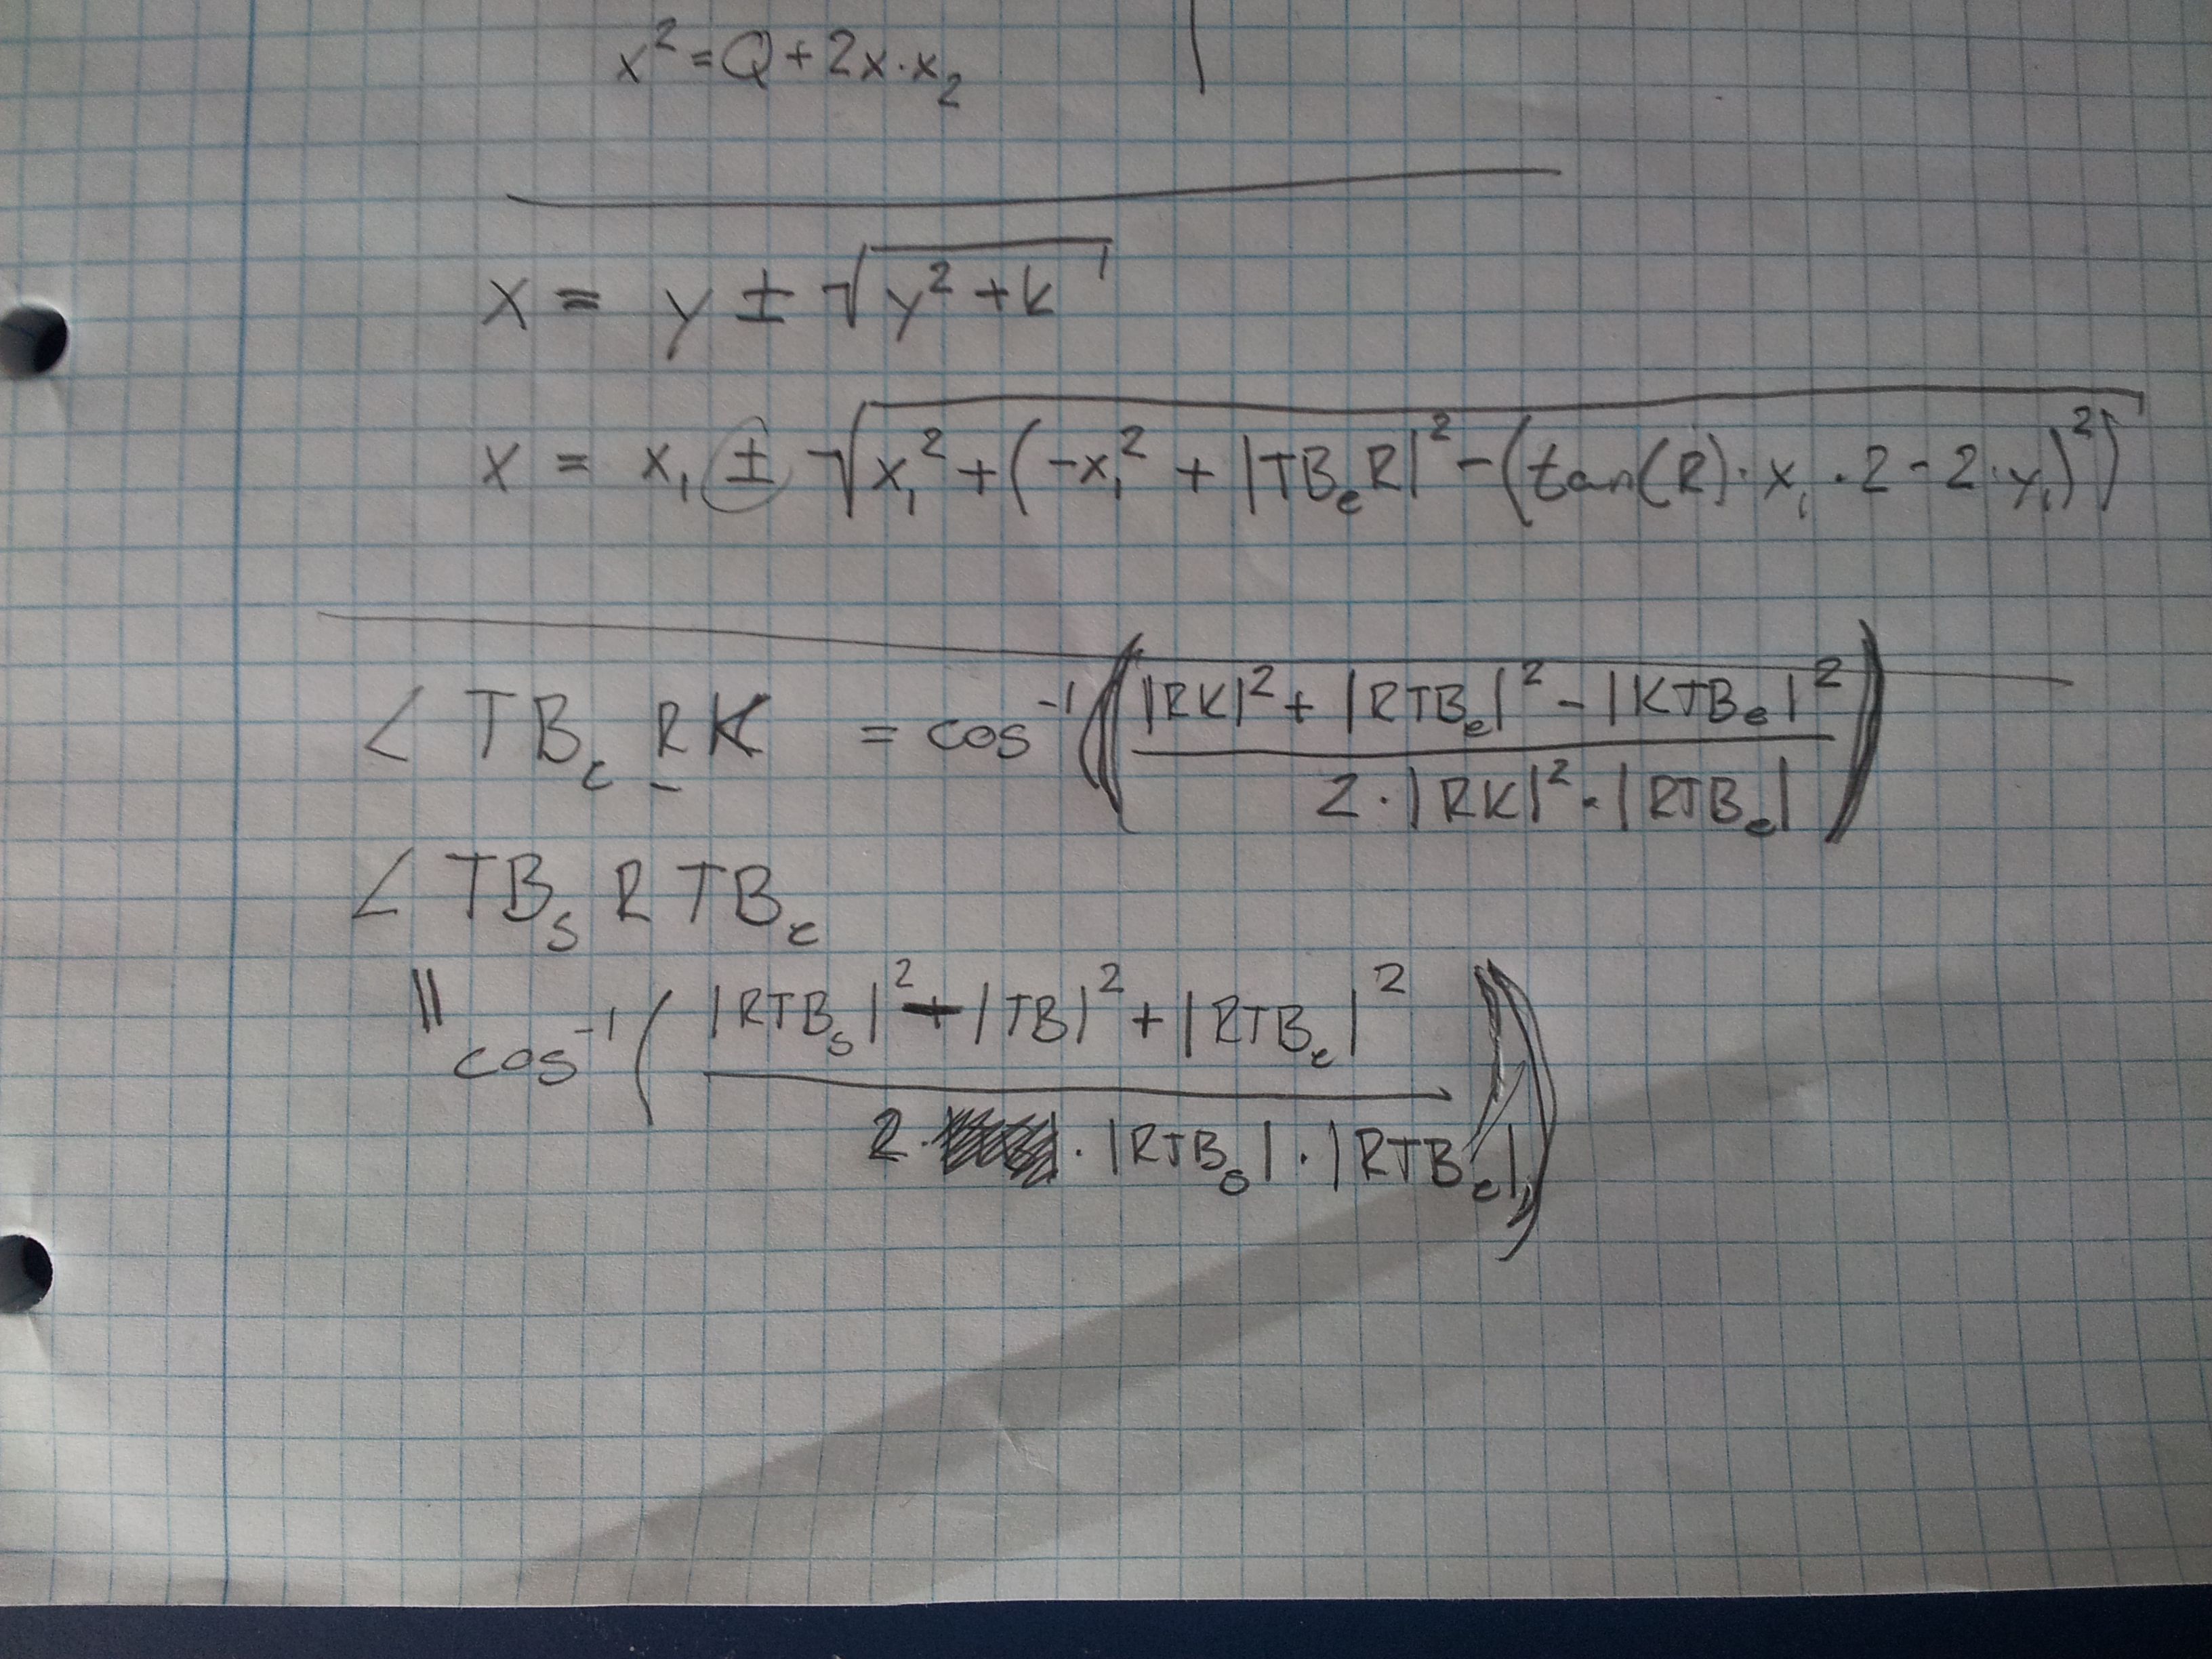 x² = Q + 2x · x₂
x = y ± √(y² + k)
x = x₁ ± √(x₁² + (-x₁² + |TBₑR|² - (tan(R) · x₁ · 2 - 2 · y₁)²))
∠ TBₑ RK = cos⁻¹((|RK|² + |RTBₑ|² - |KTBₑ|²) / (2 · |RK|² · |RTBₑ|))
∠ TBₛ R TBₑ
|| cos⁻¹((|RTBₛ|² + |TB|² + |RTBₑ|²) / (2 · · |RTBₛ| · |RTBₑ|))